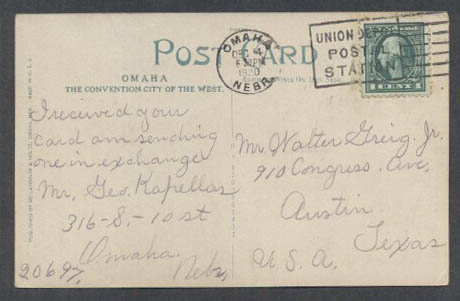 POST CARD
OMAHA
THE CONVENTION CITY OF THE WEST.
OMAHA
DEC 4
630PM
1920
NEBR.
UNION DEPOT
POST
STA
1 CENT
I received your
card am sending
one in exchange
Mr. Geo. Kapellas
316-S.-10 st
Omaha.
Nebr.
20697.
Mr. Walter Greig. Jr.
910 Congress. Ave.
Austin
Texas
U.S.A.